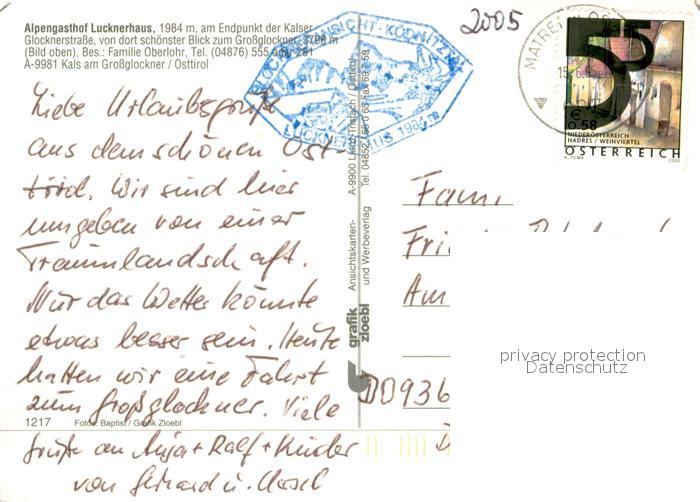 Alpengasthof Lucknerhaus, 1984 m, am Endpunkt der Kalser
Glocknerstraße, von dort schönster Blick zum Großglockner, 3798 m
(Bild oben), Bes.: Familie Oberlohr, Tel. (04876) 555 oder 281
A-9981 Kals am Großglockner / Osttirol
GLOCKNERANSICHT · KÖDNITZTAL
LUCKNERHAUS 1984 m
2005
MATREI IN
5
€ 0.58
NIEDERÖSTERREICH
HADRES / WEINVIERTEL
ÖSTERREICH
A. TUMA 2002
Liebe Urlaubsgrüße
aus dem schönen Ost-
tirol. Wir sind hier
umgeben von einer
Traumlandschaft.
Nur das Wetter könnte
etwas besser sein. Heute
hatten wir eine Fahrt
zum Großglockner. Viele
Grüße an Anja + Ralf + Kinder
von Gerhard u.
1217 Fotos: Baptist / Grafik Zloebl
grafik
zloebl
Ansichtskarten-
und Werbeverlag
A-9900 Lienz-Tristach / Osttirol
Fam.
Am
D0936
privacy protection
Datenschutz